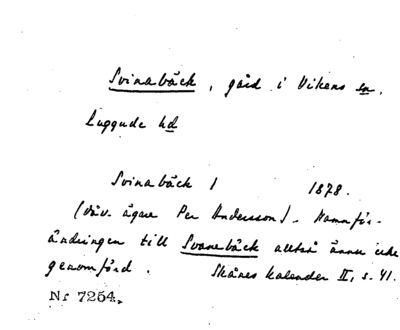 Svinabäck, gård i Vikens sn.
Luggude hd
Svinabäck 1 1878.
(däv. ägare Per Andersson). Namnför-
ändringen till Svanebäck alltså ännu icke
genomförd. Skånes kalender II, s. 41.
Nr 7254.